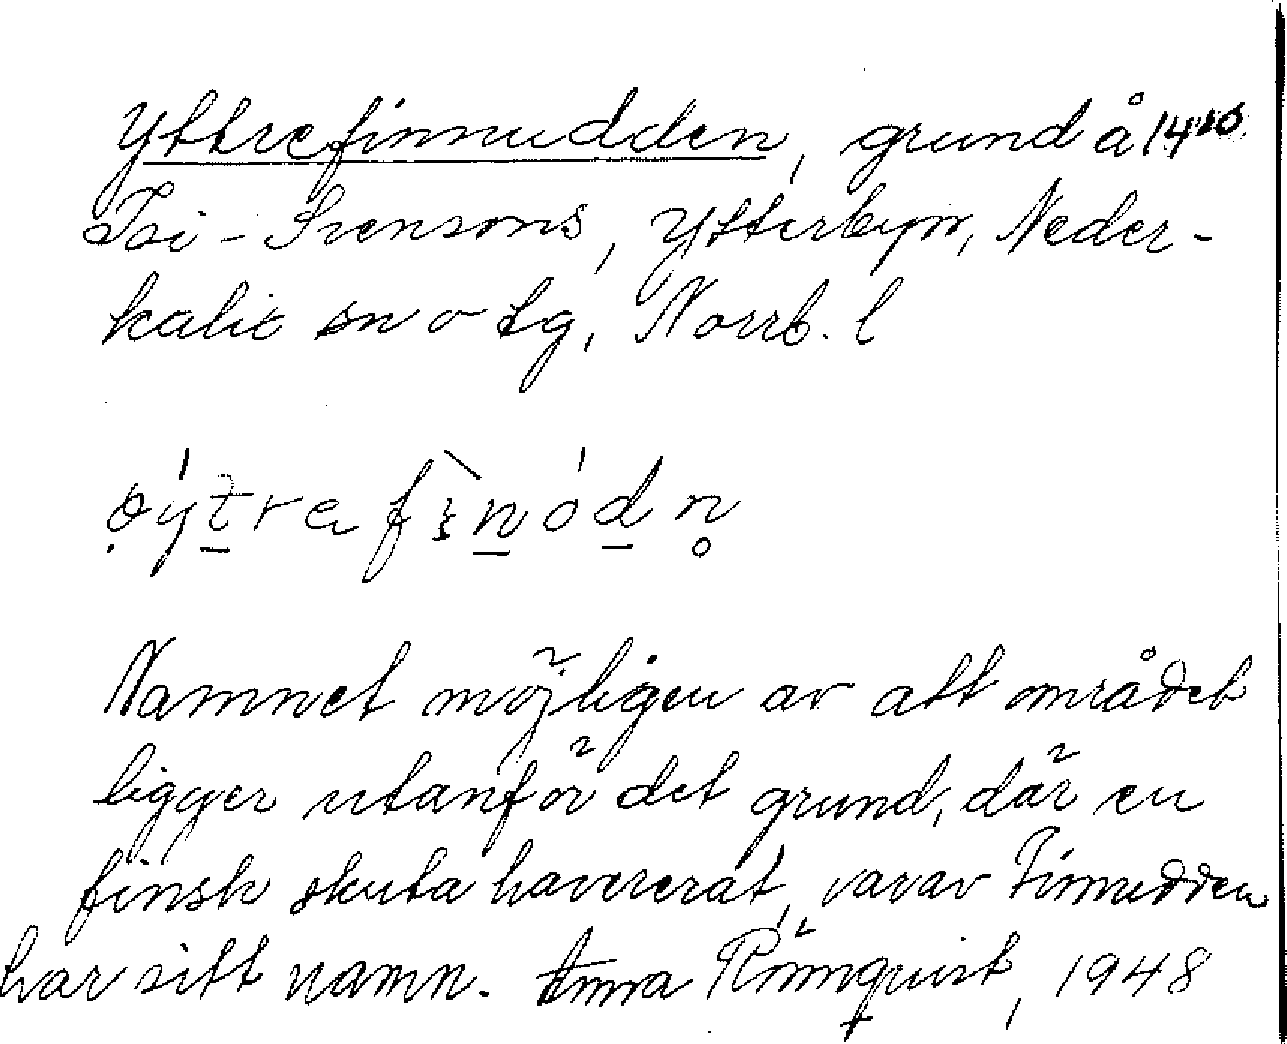 Yttrefinnudden, grund å 14¹⁰
Isi-Svensons, Ytterbyn, Neder-
kalix sn o tg, Norrb. l
Namnet möjligen av att området
ligger utanför det grund, där en
finsk skuta havererat, varav Finnudden
har sitt namn. Anna Rönnqvist, 1948